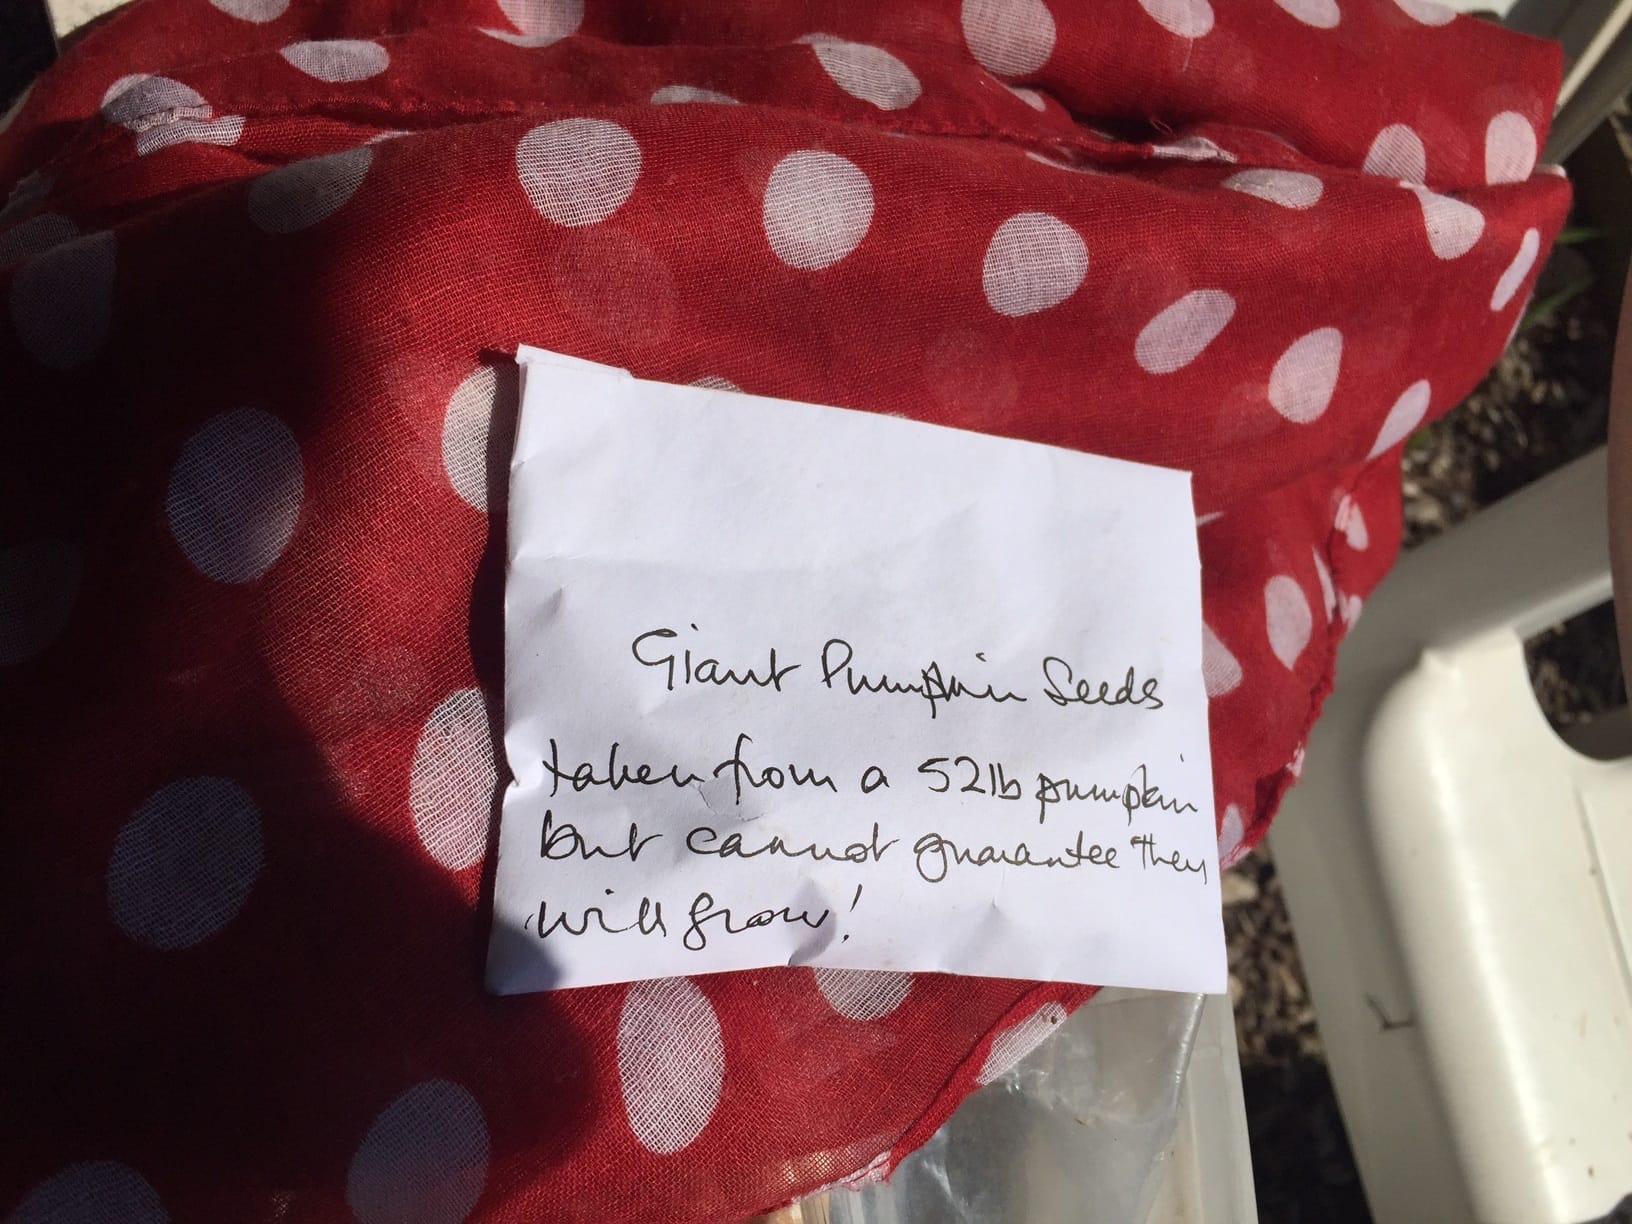 Giant Pumpkin Seeds
taken from a 52lb pumpkin
but cannot guarantee they
will grow!